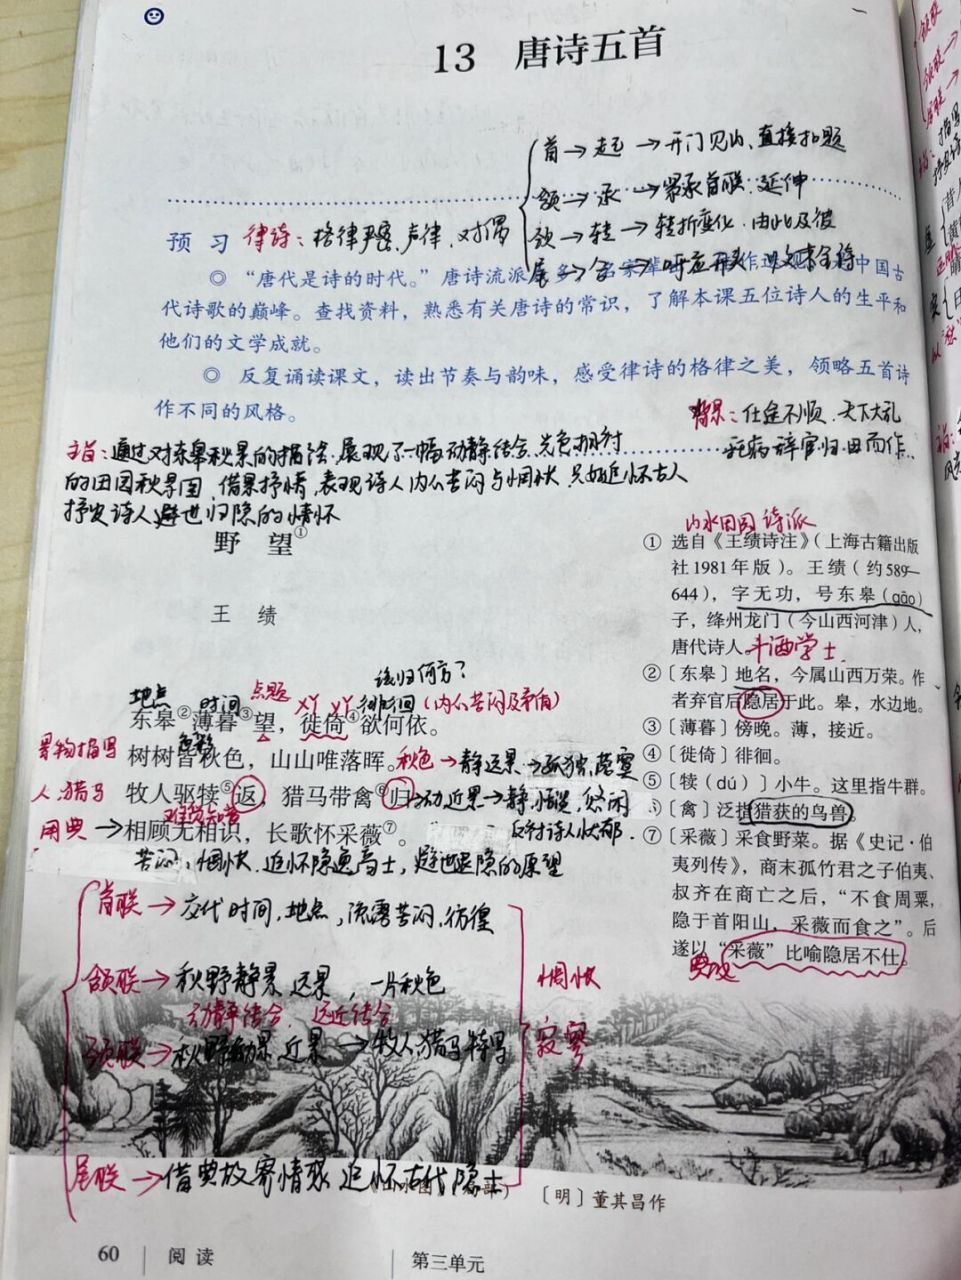 13 唐诗五首
首→起→开门见山、直接扣题
颔→承→紧承首联、延伸
颈→转→转折变化、由此及彼
尾→合→呼应开头
预 习 律诗：格律严密，声律，对偶
◎ “唐代是诗的时代。”唐诗流派 多 名家辈 作 中国古
代诗歌的巅峰。查找资料，熟悉有关唐诗的常识，了解本课五位诗人的生平和
他们的文学成就。
◎ 反复诵读课文，读出节奏与韵味，感受律诗的格律之美，领略五首诗
作不同的风格。
背景：仕途不顺、天下大乱
托病辞官归田而作
主旨：通过对东皋秋景的描绘、展现了一幅动静结合、光色相衬
的田园秋景图，借景抒情，表现诗人内心苦闷与惆怅、只好追怀古人
抒发诗人避世归隐的情怀
野 望①
王 绩
该归何方？
地点 时间 点题 徘徊（内心苦闷及矛盾）
东皋②薄暮③望，徙倚④欲何依。
景物描写 树树皆秋色，山山唯落晖。秋色→静远景→孤独、落寞
人、猎马 牧人驱犊⑤返，猎马带禽⑥归→动近景→静、惬、悠闲
反衬诗人忧郁
用典→相顾无相识，长歌怀采薇⑦。
苦闷、惆怅、追怀隐逸高士，避世退隐的愿望
首联→交代时间、地点，流露苦闷、彷徨
颔联→秋野静景 远景，一片秋色
惆怅
动静结合、远近结合
颈联→秋野动景 近景→牧人、猎马特写
寂寥
尾联→借典故寄情怀 追怀古代隐士
山水田园诗派
① 选自《王绩诗注》（上海古籍出版
社1981年版）。王绩（约589—
644），字无功，号东皋（gāo）
子，绛州龙门（今山西河津）人，
唐代诗人 斗酒学士
② 〔东皋〕地名，今属山西万荣。作
者弃官后隐居于此。皋，水边地。
③ 〔薄暮〕傍晚。薄，接近。
④ 〔徙倚〕徘徊。
⑤ 〔犊（dú）〕小牛。这里指牛群。
⑥ 〔禽〕泛指猎获的鸟兽。
⑦ 〔采薇〕采食野菜。据《史记·伯
夷列传》，商末孤竹君之子伯夷、
叔齐在商亡之后，“不食周粟，
隐于首阳山，采薇而食之”。后
遂以“采薇”比喻隐居不仕。
〔明〕董其昌作
60 阅 读 第三单元